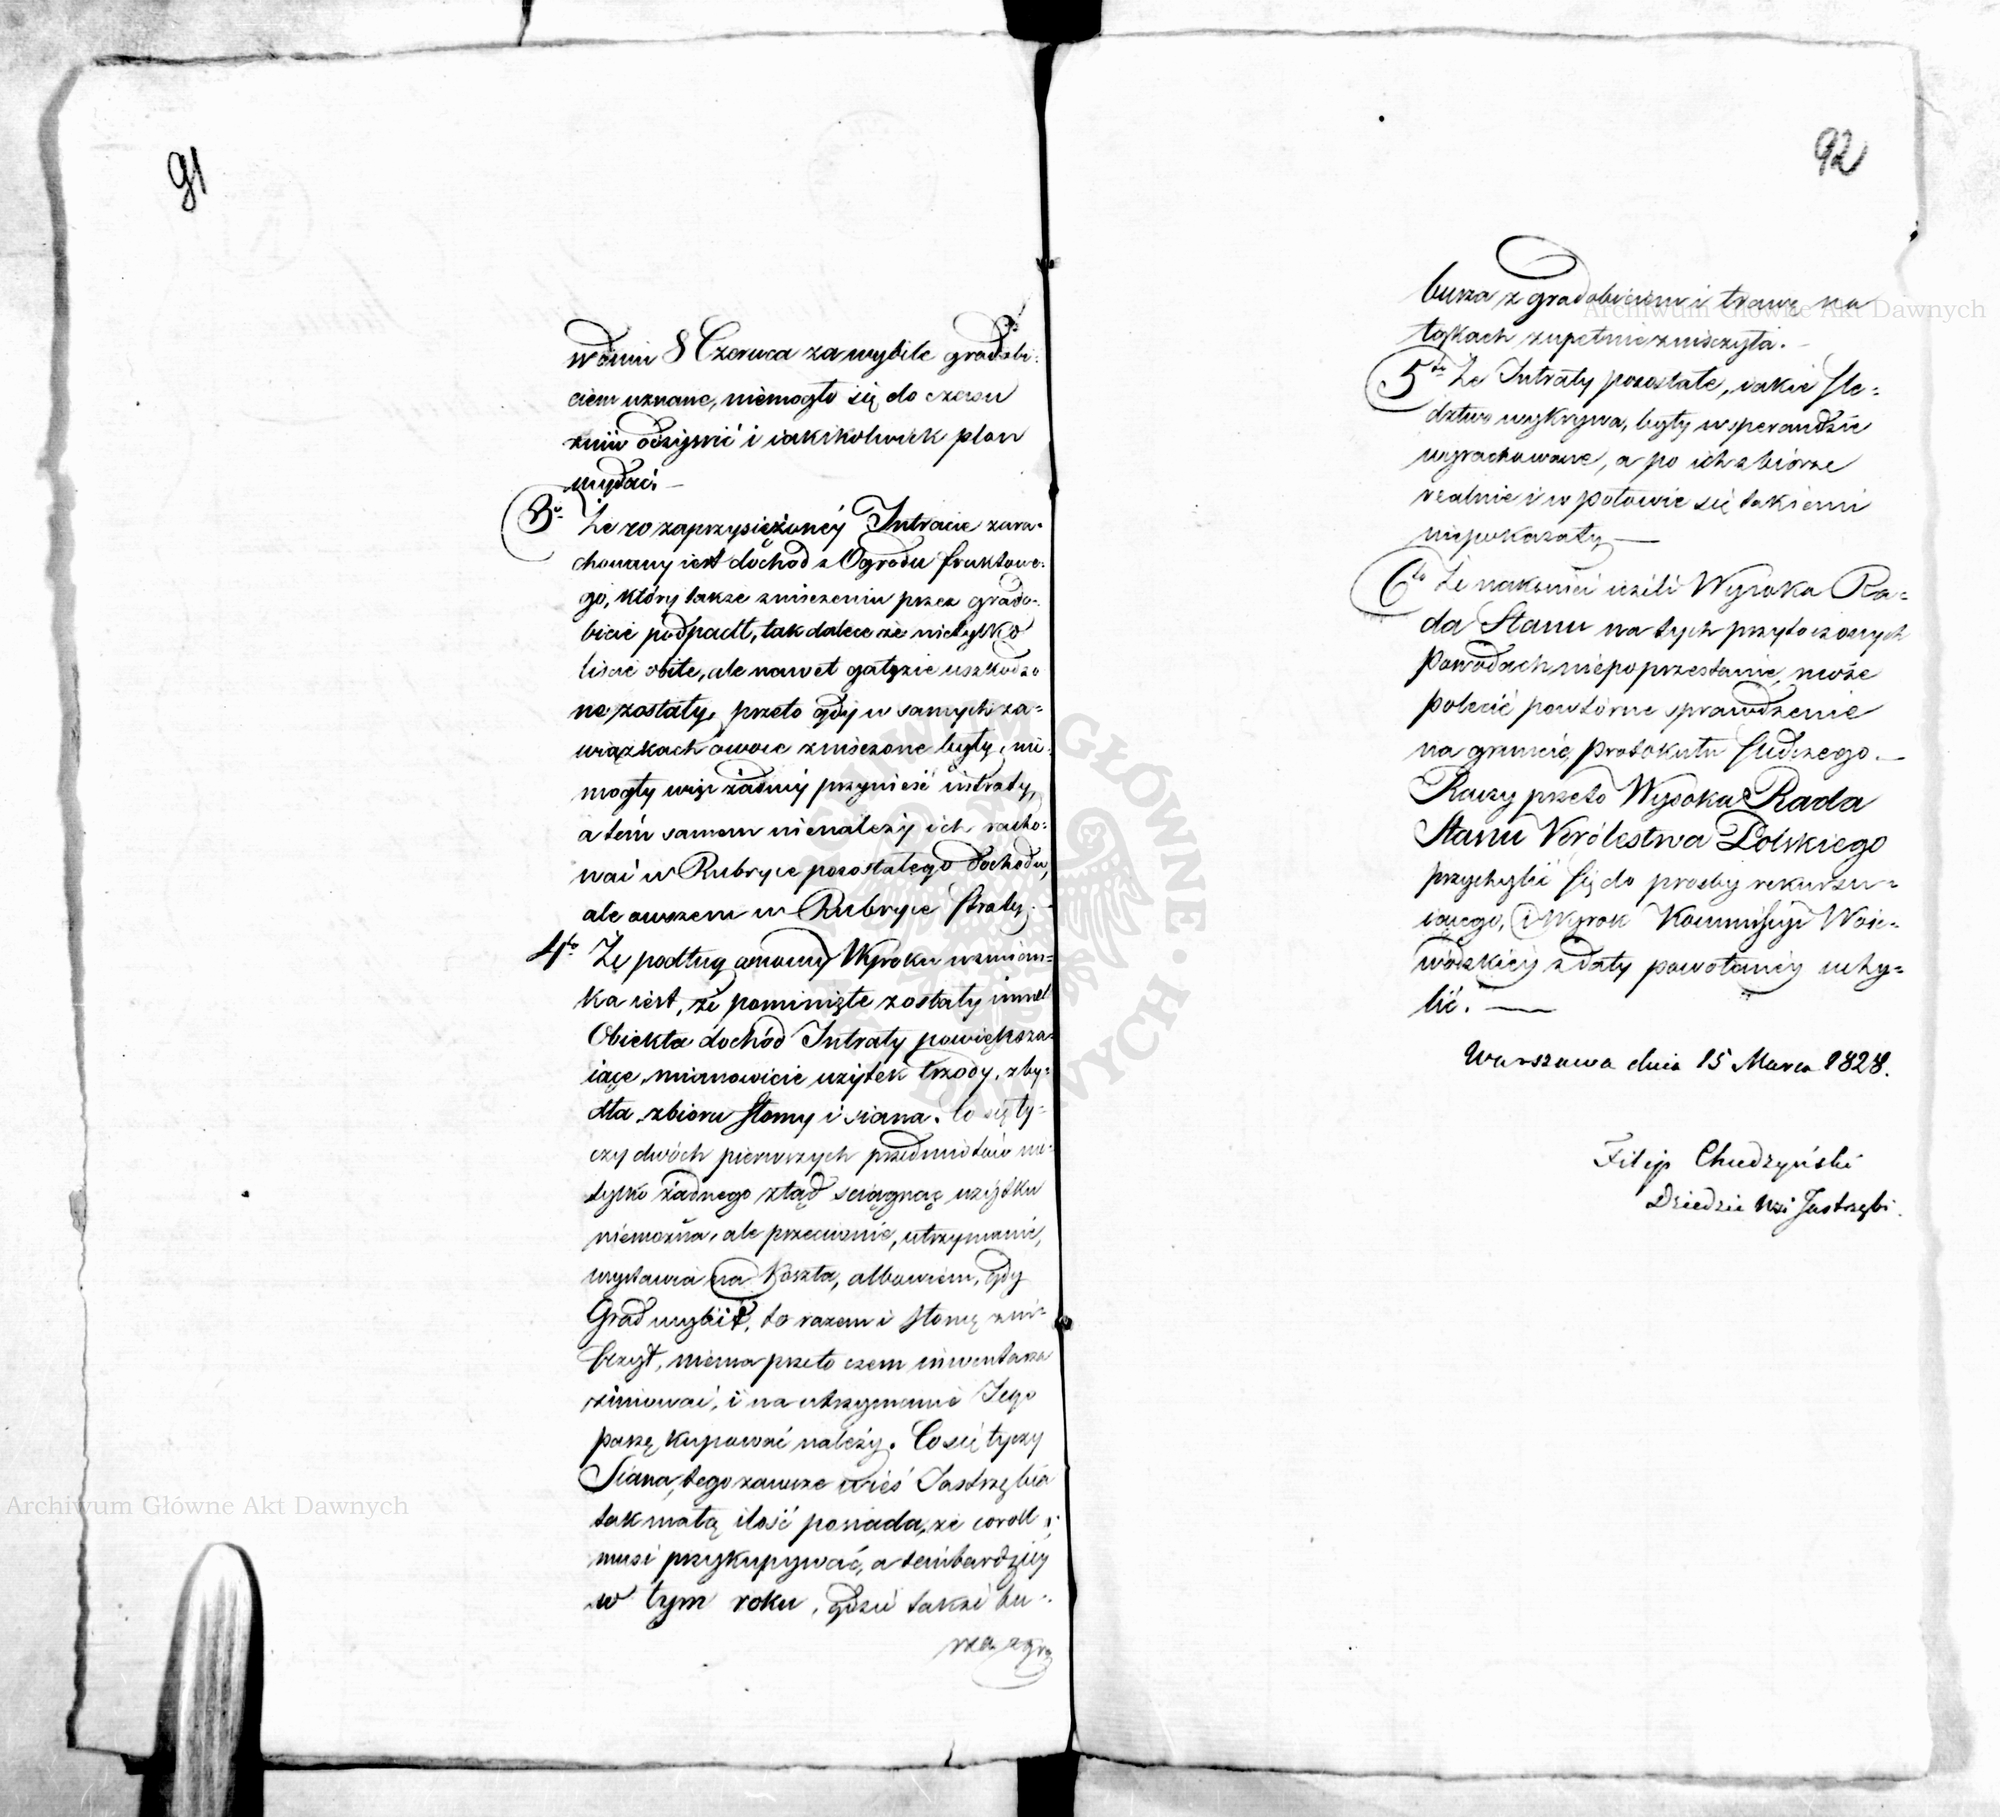 91
w dniu 8 Czerwca za wybite gradobi-
ciem uznane, niemogło się do czasu
żniw odżywić i iakikolwiek plon
wydać. —
3o Że co zaprzysiężonéy Intracie zara-
chowany iest dochód z Ogrodu fruktowe-
go, który także zniszczeniu przez grado-
bicie podpadł, tak dalece że nietylko
liście obite, ale nawet gałęzie uszkodzo
ne zostały, przeto gdy w samych za-
wiązkach owoce zniszczone były, nie-
mogły więc żadnéy przynieść intraty,
a tém samem nienależy ich racho-
wać w Rubryce pozostałego dochodu,
ale owszem w Rubryce straty. -
4to Że podług osnowy Wyroku wzmian-
ka iest, że pominięte zostały inne
Obiekta dochód Intraty powiększa-
iące, mianowicie użytek trzody, z by-
dła, zbioru słomy i siana. Co się ty-
czy dwóch pierwszych przedmiotów nie-
tylko żadnego ztąd sciągnąć użytku
niemożna, ale przeciwnie, utrzymanie,
wystawia na Koszta, albowiem, gdy
Grad wybił, to razem i słomę zni-
szczył, niema przeto czem inwentarza
zimować, i na utrzymanie Jego
paszę kupować należy. Co się tyczy
Siana, tego zawsze wieś Jastrzębia
tak małą ilość posiada, że corok
musi przykupywać, a tém bardziéy
w tym roku, gdzie także bu-
rza z gra
92
burza z gradobiciem i trawę na
łąkach zupełnie zniszczyła. -
5to Że Intraty pozostałe, iakie śle-
dztwo wykrywa, były w sperandzie
wyrachowane, a po ich zbiorze
realnie i w połowie się takiemi
niepokazały —
6to Że nakoniec ieżeli Wysoka Ra-
da Stanu na tych przytoczonych
powodach niepoprzestanie, może
polecić powtórne sprawdzenie
na gruncie protokułu śledczego. —
Raczy przeto Wysoka Rada
Stanu Królestwa Polskiego
przychylić się do prośby rekursu-
iącego, i Wyrok Kommissyi Woie-
wódzkiéy z daty powołanéy uchy-
lić. —
Warszawa dnia 15 Marca 1828.
Filip Chudzyński
Dziedzic Wsi Jastrzębi.
Archiwum Główne Akt Dawnych
Archiwum Główne Akt Dawnych